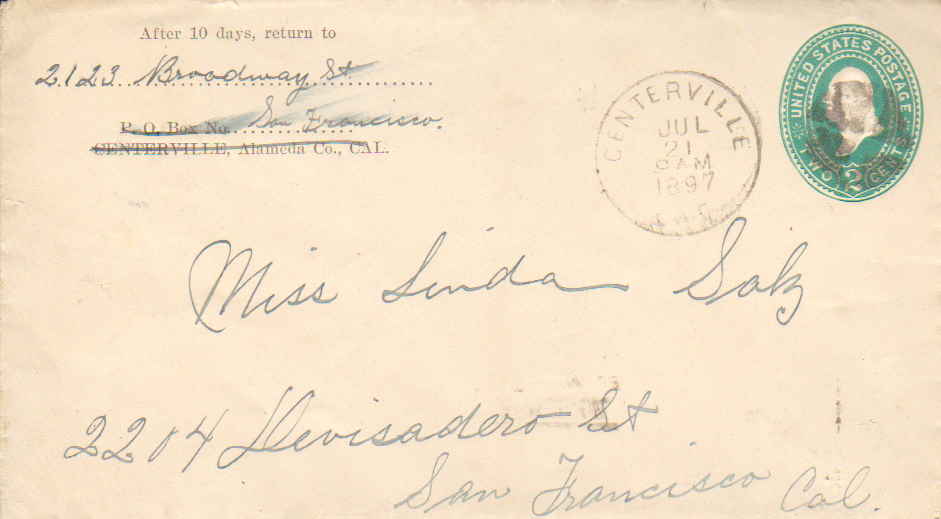 After 10 days, return to
2123 Broadway St
San Francisco.
P. O. Box No.
CENTERVILLE, Alameda Co., CAL.
CENTERVILLE
JUL
21
1897
UNITED STATES POSTAGE
TWO 2 CENTS
Miss Linda Salz
2204 Devisadero St
San Francisco Cal.